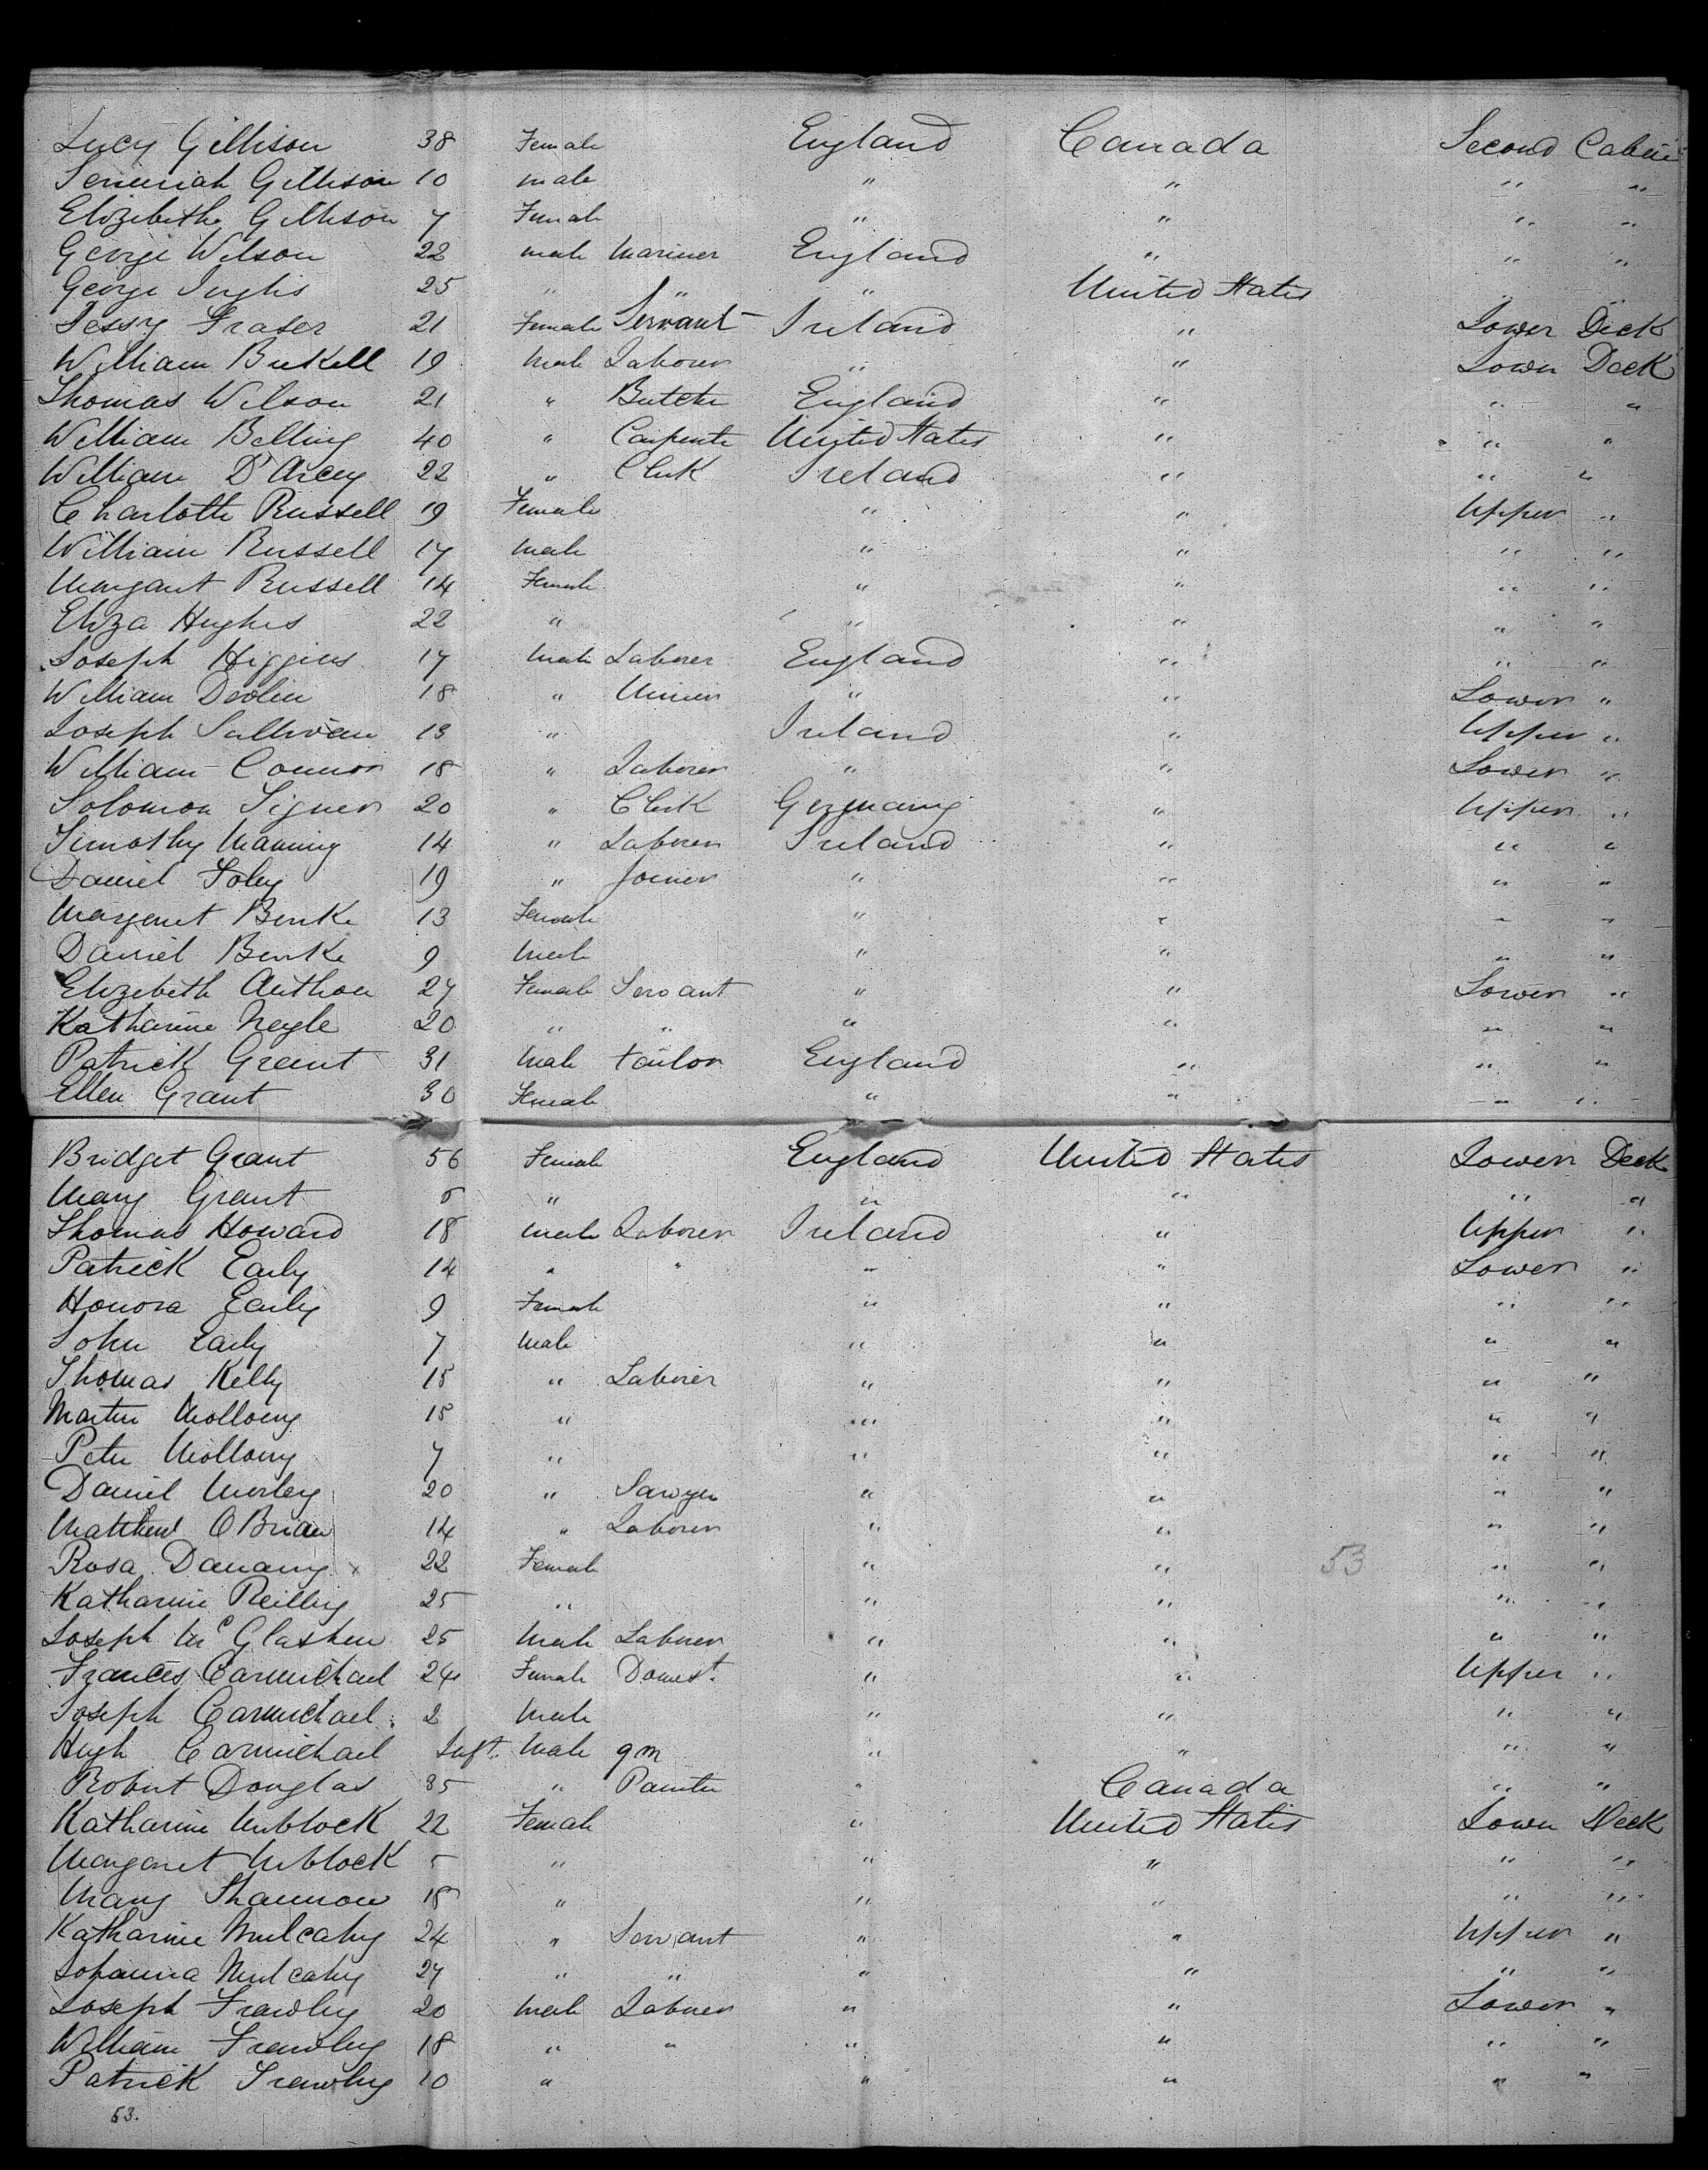 Lucy Gillison 38 Female England Canada Second Cabin
Jeremiah Gillison 10 male " " " "
Elizebeth Gillison 7 Female " " " "
George Wilson 22 male Mariner England " " "
George Inglis 25 " " " United States " "
Jessy Fraser 21 Female Servant Ireland " Lower Deck
William Buckell 19 Male Laborer " " Lower Deck
Thomas Wilson 21 " Butcher England " " "
William Belling 40 " Carpenter United States " " "
William D'Arcey 22 " Clerk Ireland " " "
Charlotte Russell 19 Female " " Upper "
William Russell 17 Male " " " "
Margaret Russell 14 Female " " " "
Eliza Hughes 22 " " " " "
Joseph Higgins 17 Male Laborer England " " "
William Devlin 18 " Miner " " Lower "
Joseph Sullivan 13 " Ireland " Upper "
William Connor 18 " Laborer " " Lower "
Solomon Signer 20 " Clerk Germany " Upper "
Timothy Manning 14 " Laborer Ireland " " "
Daniel Foley 19 " Joiner " " " "
Margaret Burke 13 Female " " " "
Daniel Burke 9 Male " " " "
Elizebeth 27 Female Servant " " Lower "
Katharine Neyle 20 " " " " " "
Patrick Grant 31 Male tailor England " " "
Ellen Grant 30 Female " " " "
Bridget Grant 56 Female England United States Lower Deck
Mary Grant " " " " "
Thomas Howard 18 Male Laborer Ireland " Upper "
Patrick Early 14 " " " " Lower "
Honora Early 9 Female " " " "
John Early 7 Male " " " "
Thomas Kelly 15 " Laborer " " " "
Martin Mollony 15 " " " " "
Peter Mollony 7 " " " " "
Daniel Morley 20 " Sawyer " " " "
Matthew O'Brian 14 " Laborer " " " "
Rosa 22 Female " " 53 " "
Katharine Reilly 25 " " " " "
Joseph McGlashen 25 Male Laborer " " " "
Frances Carmichael 24 Female Domest. " " Upper "
Joseph Carmichael 2 Male " " " "
Hugh Carmichael Inft. Male 9m " " " "
Robert Douglas 35 " Painter " Canada " "
Katharine 22 Female " United States Lower Deck
Margaret 5 " " " " "
Mary Shannon 18 " " " " "
Katharine Mulcahy 24 " Servant " " Upper "
Johanna Mulcahy 27 " " " " " "
Joseph Frawley 20 Male Laborer " " Lower "
William Frawley 18 " " " " " "
Patrick Frawley 10 " " " " "
53.